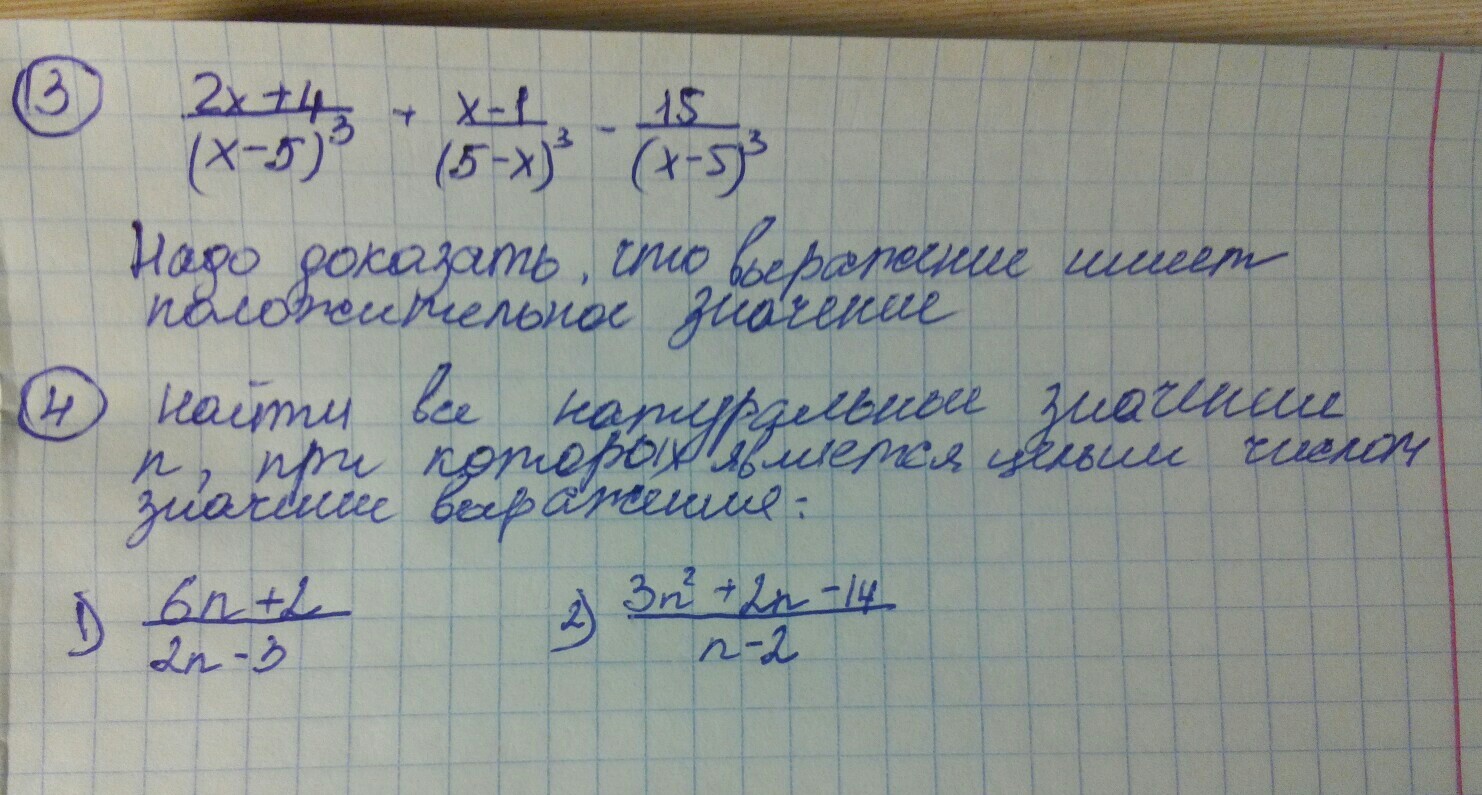 3 (2x+4)/(x-5)³ + (x-1)/(5-x)³ - 15/(x-5)³
Надо доказать, что выражение имеет
положительное значение
4 Найти все натуральные значения
n, при которых является целым числом
значение выражения:
1) (6n+2)/(2n-3) 2) (3n²+2n-14)/(n-2)